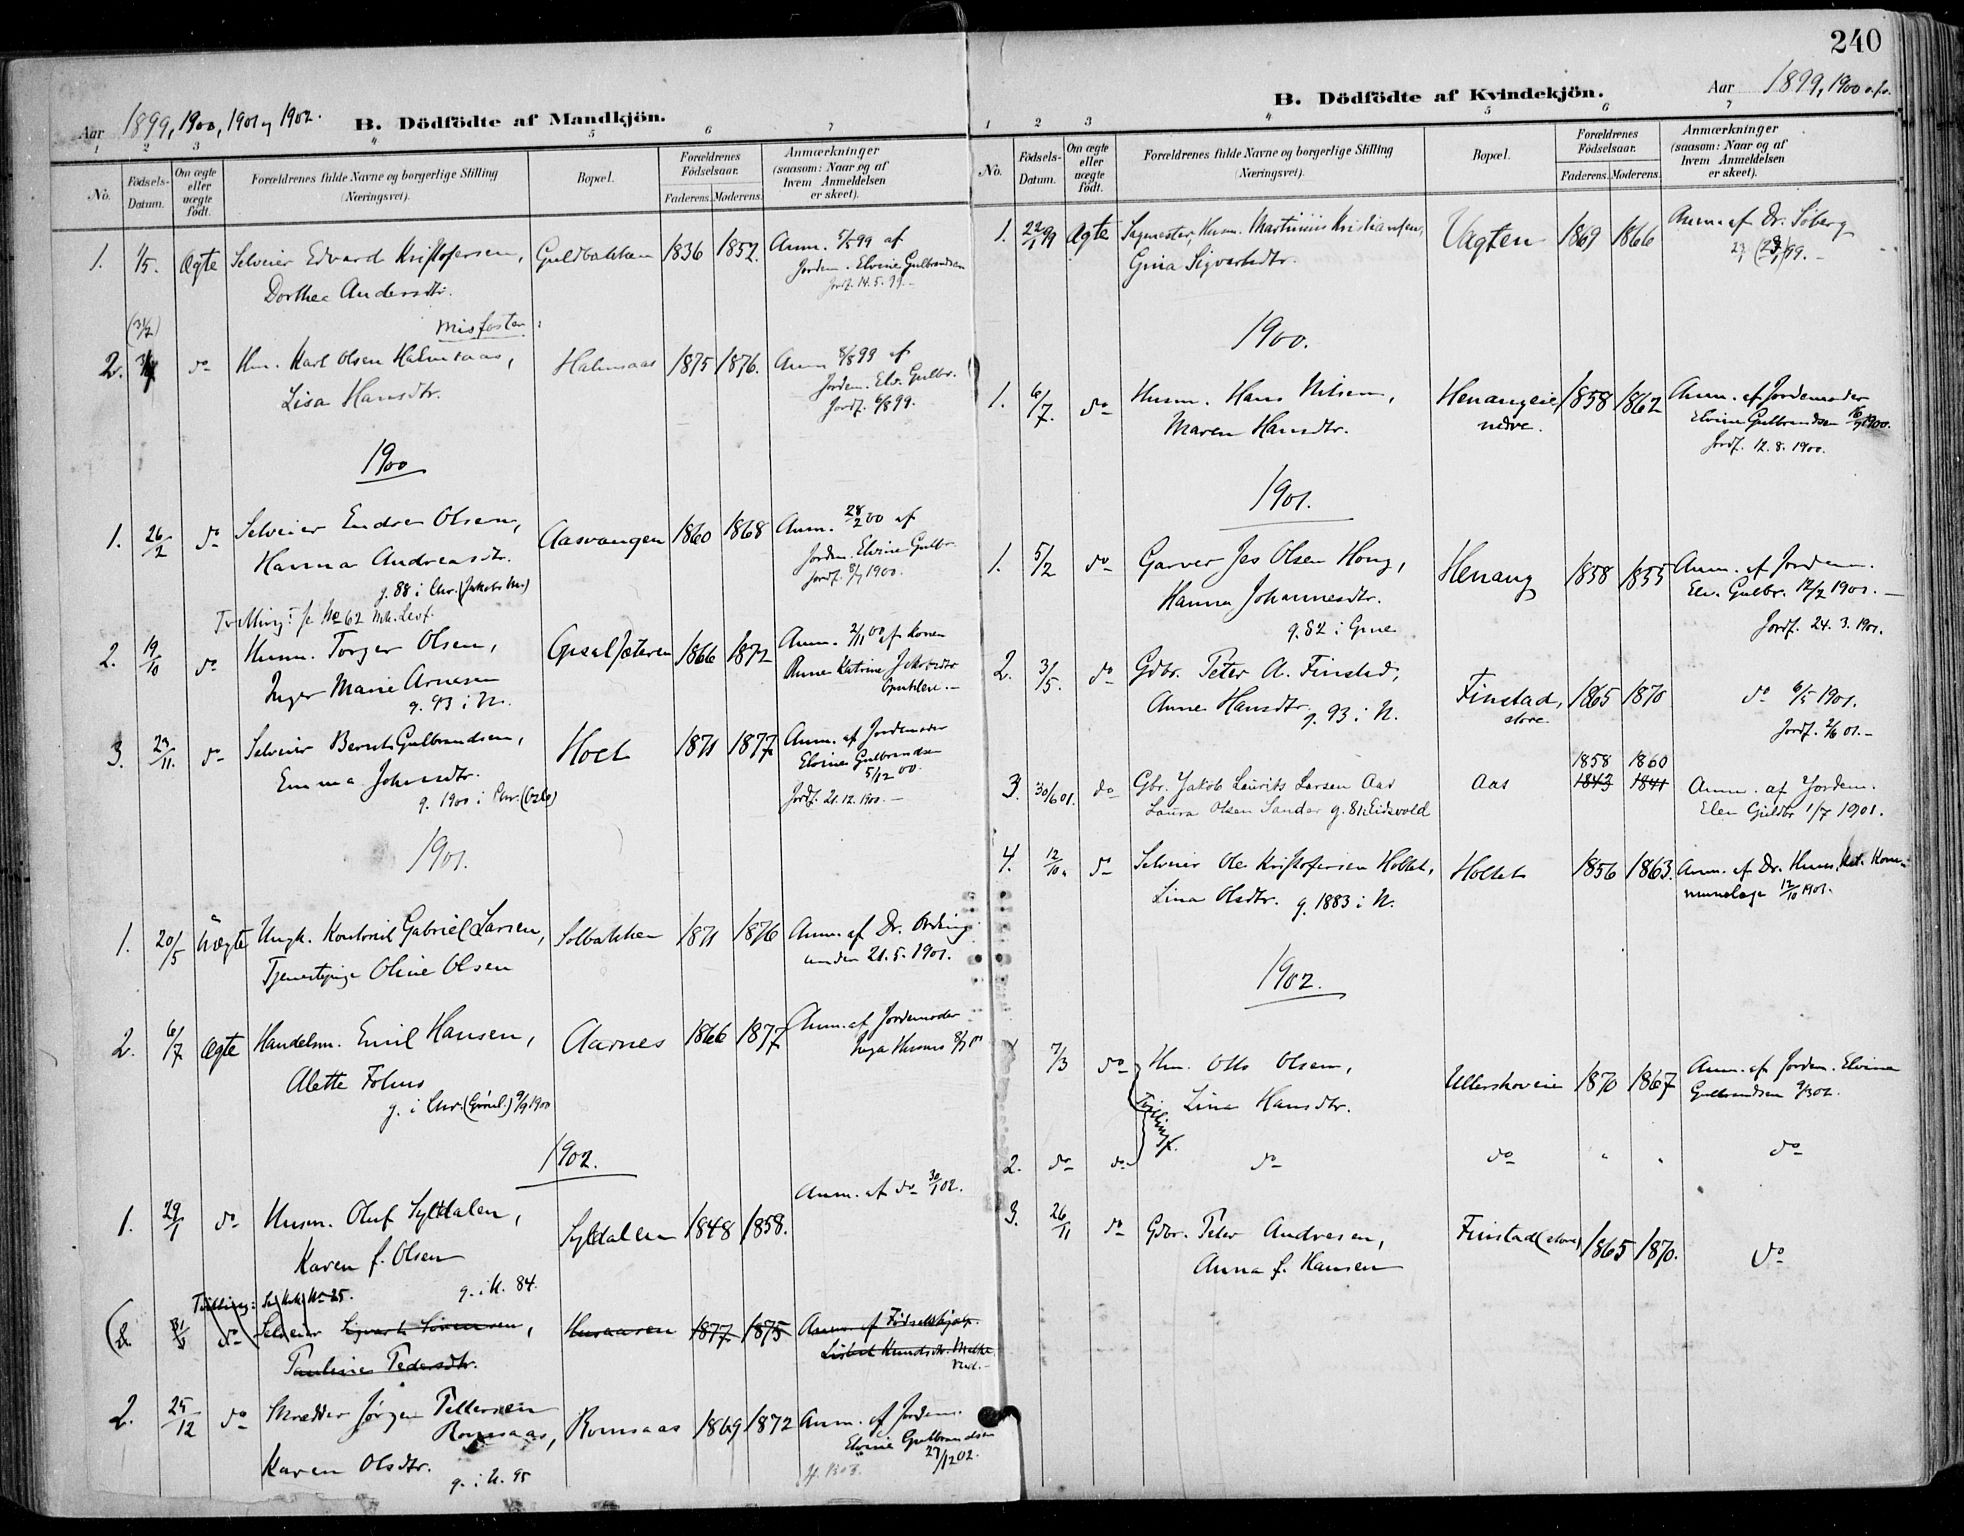 240
Aar 1899, 1900, 1901 og 1902.
B. Dödfödte af Mandkjön.
1 2 3 4 5 6 7
No.
Födsels-Datum.
Om ægte eller uægte födt.
Forældrenes fulde Navne og borgerlige Stilling (Næringsvei).
Bopæl.
Forældrenes Födselsaar.
Faderens. Moderens.
Anmærkninger (saasom: Naar og af hvem Anmeldelsen er skeet).
1. 1/5. Ægte Selveier Edvard Kristofersen, Guldbakken 1836 1852. Anm. 5/5 99 af
Dorthea Andersdtr. Jordm. Elvine Gulbrandsen
Jordf. 14.5.99.
(31/7) Misfoster:
2. do Hm. Karl Olsen Halmsaas, Halmsaas 1875 1876. Anm 8/8 99 af
Lisa Hansdtr. Jordem. Elv. Gulbr.
Jordf. 6/8 99.
1900
1. 26/2 do Selveier Endre Olsen, Aasvangen 1860 1868 Anm. 28/2 00 af
Hanna Andreasdtr. Jordm. Elvine Gulbr.
g. 88 i Chr. (Jakobs M.) Jordf. 8/7 1900.
Tvilling: fr No 62 Mk. Levf.
2. 19/10 do Husm. Torger Olsen, 1866 1872 Anm. 2/11 00 af Konen
Inger Marie Arnesen Anne Katrine Jakobsdtr
g. 93 i N. Opaklere.
3. 23/11. do Selveier Bernt Gulbrandsen, Holt 1871 1877 Anm. af Jordemoder
Emma Johnsdtr. Elvine Gulbrandsen
5/12 00.
g. 1900 i Chr. (Oslo) Jordf. 21.12.1900.
1901.
1. 20/5 Uægte Ungk. Kontorist Gabriel Larsen, Solbakken 1871 1876 Anm. af Dr. Ording
Tjenestepige Oline Olsen 21.5.1901.
2. 6/7 Ægte Handelsm. Emil Hansen, Aarnes 1866 1877 Anm. af Jordemoder
Alette Folmo
g. i Chr. (Grönl.) 9/9 1900
1902.
1. 29/1 do Husm. Oluf Syldalen, Syldalen 1848 1858. Anm. af do 30/1 02.
Karen f. Olsen
g. i N. 84.
Tvilling:
(2 do Selveier Sigvart Sörensen, Husaasen 1877 1875 Anm. af Födselshjælp.
Pauline Pedersdtr. Lisbet Knudsdtr.
2. 25/12 do Skrædder Jörgen Pettersen Romsaas, Romsaas 1869 1872 Anm. af Jordem.
Karen Olsdtr. Elvine Gulbrandsen
g. i N. 95 27/12 02.
B. Dödfödte af Kvindekjön.
Aar 1899, 1900 o.fv.
1 2 3 4 5 6 7
No.
Födsels-Datum.
Om ægte eller uægte födt.
Forældrenes fulde Navne og borgerlige Stilling (Næringsvei).
Bopæl.
Forældrenes Födselsaar.
Faderens. Moderens.
Anmærkninger (saasom: Naar og af hvem Anmeldelsen er skeet).
1. 22/1 99 Ægte Sagmester, Husm. Martinius Kristiansen, Vagten 1869 1866 Anm. af Dr. Söberg
Gina Sigvartsdtr.
1900.
1. 6/7. do Husm. Hans Nilsen, Henangeie nedre. 1858 1862 Anm. af Jordemoder
Maren Hansdtr. Elvine Gulbrandsen 1900.
Jordf. 12.8.1900.
1901.
1. 5/2 do Garver Jes Olsen Hong, Henang 1858 1855 Anm. af Jordem.
Hanna Johannesdtr. Elv. Gulbr. 12/2 1901.
g. 82 i Grue Jordf. 24.3.1901.
2. 3/5. do Gdbr. Peter A. Finstad, Finstad, store. 1865 1870 do 6/5 1901.
Anne Hansdtr. g. 93 i N. Jordf. 2/6 01.
1858 1860
3. 30/6 01. do Gbr. Jakob Laurits Larsen Aas Aas 1843 1841 Anm. af Jordem.
Laura Olsen Sander g. 81 i Eidsvold Elen Guldbr 1/7 1901.
4. 12/10. do Selveier Ole Kristofersen Holtet, Holtet 1856 1863. Anm. af Dr. Huus, Kst. Kommunelæge 12/10 1901.
Lina Olsdtr. g. 1883 i N.
1902.
7/3 do Hm. Otto Olsen, Ullershoveie 1870 1867 Anm. af Jordem. Elvine
Lina Hansdtr. Gulbrandsen 9/3 02.
Tvillingf.
2. do do do do " " do
3. 26/11 do Gdbr. Peter Andresen, Finstad (store) 1865 1870. do
Anna f. Hansen